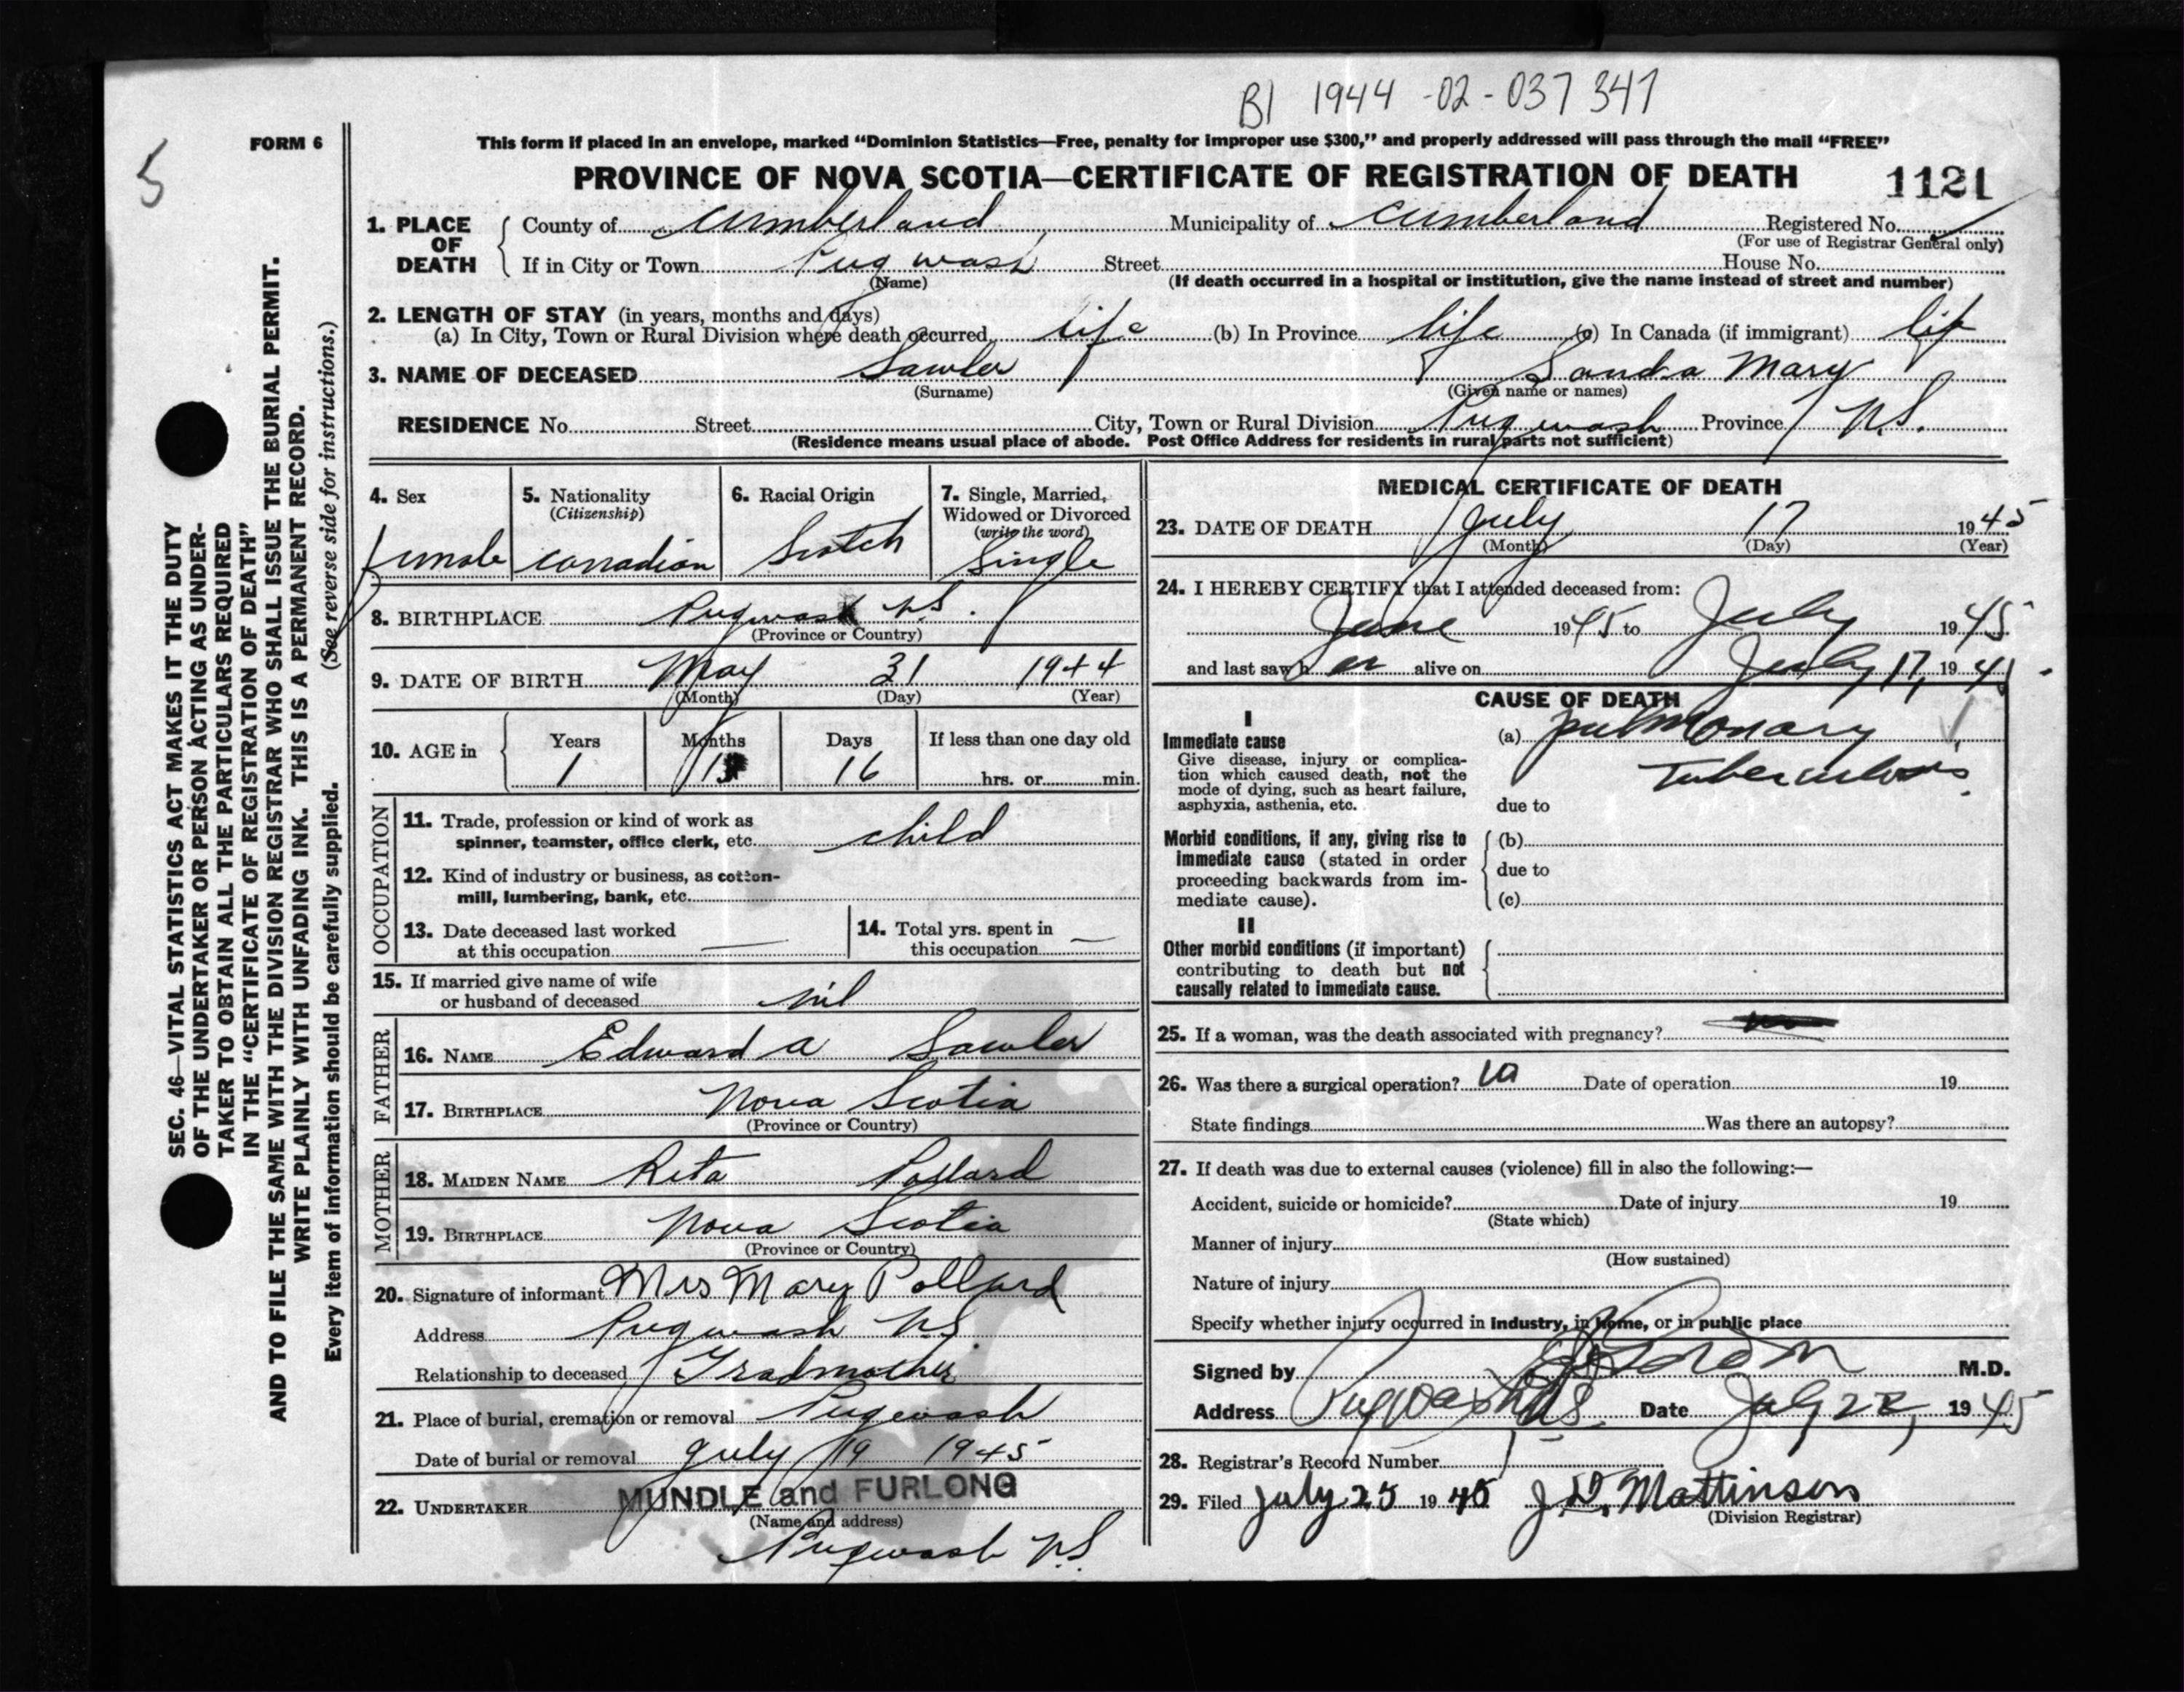 BI 1944-02-037347
5
FORM 6
This form if placed in an envelope, marked "Dominion Statistics—Free, penalty for improper use $300," and properly addressed will pass through the mail "FREE"
PROVINCE OF NOVA SCOTIA—CERTIFICATE OF REGISTRATION OF DEATH 1121
SEC. 46—VITAL STATISTICS ACT MAKES IT THE DUTY
OF THE UNDERTAKER OR PERSON ACTING AS UNDER-
TAKER TO OBTAIN ALL THE PARTICULARS REQUIRED
IN THE "CERTIFICATE OF REGISTRATION OF DEATH"
AND TO FILE THE SAME WITH THE DIVISION REGISTRAR WHO SHALL ISSUE THE BURIAL PERMIT.
WRITE PLAINLY WITH UNFADING INK. THIS IS A PERMANENT RECORD.
Every item of information should be carefully supplied. (See reverse side for instructions.)
1. PLACE OF DEATH
County of Cumberland Municipality of Cumberland Registered No.
(For use of Registrar General only)
If in City or Town Pugwash Street House No.
(Name) (If death occurred in a hospital or institution, give the name instead of street and number)
2. LENGTH OF STAY (in years, months and days)
(a) In City, Town or Rural Division where death occurred life (b) In Province life (c) In Canada (if immigrant) life
3. NAME OF DECEASED Sawler Sandra Mary
(Surname) (Given name or names)
RESIDENCE No. Street City, Town or Rural Division Pugwash Province N.S.
(Residence means usual place of abode. Post Office Address for residents in rural parts not sufficient)
4. Sex female
5. Nationality
(Citizenship)
Canadian
6. Racial Origin
Scotch
7. Single, Married,
Widowed or Divorced
(write the word)
Single
8. BIRTHPLACE Pugwash N.S.
(Province or Country)
9. DATE OF BIRTH May 31 1944
(Month) (Day) (Year)
10. AGE in Years Months Days If less than one day old
1 1 16 hrs. or min.
OCCUPATION
11. Trade, profession or kind of work as
spinner, teamster, office clerk, etc. child
12. Kind of industry or business, as cotton-
mill, lumbering, bank, etc.
13. Date deceased last worked
at this occupation —
14. Total yrs. spent in
this occupation —
15. If married give name of wife
or husband of deceased nil
FATHER
16. NAME Edward A Sawler
17. BIRTHPLACE Nova Scotia
(Province or Country)
MOTHER
18. MAIDEN NAME Rita Pollard
19. BIRTHPLACE Nova Scotia
(Province or Country)
20. Signature of informant Mrs Mary Pollard
Address Pugwash N.S.
Relationship to deceased Gradmother
21. Place of burial, cremation or removal Pugwash
Date of burial or removal July 19 1945
22. UNDERTAKER MUNDLE and FURLONG
(Name and address)
Pugwash N.S.
MEDICAL CERTIFICATE OF DEATH
23. DATE OF DEATH July 17 1945
(Month) (Day) (Year)
24. I HEREBY CERTIFY that I attended deceased from:
June 1945 to July 1945
and last saw her alive on July 17, 19
CAUSE OF DEATH
I
Immediate cause
Give disease, injury or complica-
tion which caused death, not the
mode of dying, such as heart failure,
asphyxia, asthenia, etc.
(a) pulmonary
Tuberculosis
due to
Morbid conditions, if any, giving rise to
immediate cause (stated in order
proceeding backwards from im-
mediate cause).
(b)
due to
(c)
II
Other morbid conditions (if important)
contributing to death but not
causally related to immediate cause.
25. If a woman, was the death associated with pregnancy?
26. Was there a surgical operation? no Date of operation 19
State findings Was there an autopsy?
27. If death was due to external causes (violence) fill in also the following:—
Accident, suicide or homicide? Date of injury 19
(State which)
Manner of injury
(How sustained)
Nature of injury
Specify whether injury occurred in industry, in home, or in public place
Signed by M.D.
Address Pugwash N.S. Date July 22, 1945
28. Registrar's Record Number
29. Filed July 25 1945 J. D. Mattinson
(Division Registrar)